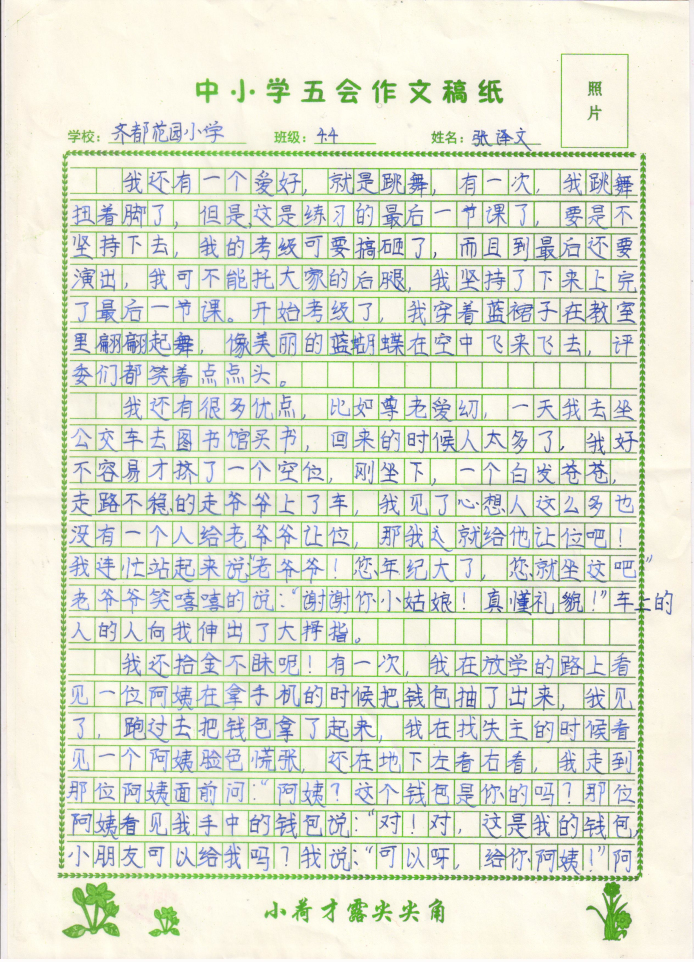 中小学五会作文稿纸
照片
学校：齐都花园小学 班级：4.4 姓名：张译文
我还有一个爱好，就是跳舞，有一次，我跳舞
扭着脚了，但是，这是练习的最后一节课了，要是不
坚持下去，我的考级可要搞砸了，而且到最后还要
演出，我可不能托大家的后腿，我坚持了下来上完
了最后一节课。开始考级了，我穿着蓝裙子在教室
里翩翩起舞，像美丽的蓝蝴蝶在空中飞来飞去，评
委们都笑着点点头。
我还有很多优点，比如尊老爱幼，一天我去坐
公交车去图书馆买书，回来的时候人太多了，我好
不容易才挤了一个空位，刚坐下，一个白发苍苍，
走路不稳的走爷爷上了车，我见了心想人这么多也
没有一个人给老爷爷让位，那我就给他让位吧！
我连忙站起来说“老爷爷！您年纪大了，您就坐这吧”
老爷爷笑嘻嘻的说：“谢谢你小姑娘！真懂礼貌！”车上的
人的人向我伸出了大拇指。
我还拾金不昧呢！有一次，我在放学的路上看
见一位阿姨在拿手机的时候把钱包抽了出来，我见
了，跑过去把钱包拿了起来，我在找失主的时候看
见一个阿姨脸色慌张，还在地下左看右看，我走到
那位阿姨面前问：“阿姨？这个钱包是你的吗？那位
阿姨看见我手中的钱包说：“对！对，这是我的钱包，
小朋友可以给我吗？我说：“可以呀，给你阿姨！”阿
小荷才露尖尖角